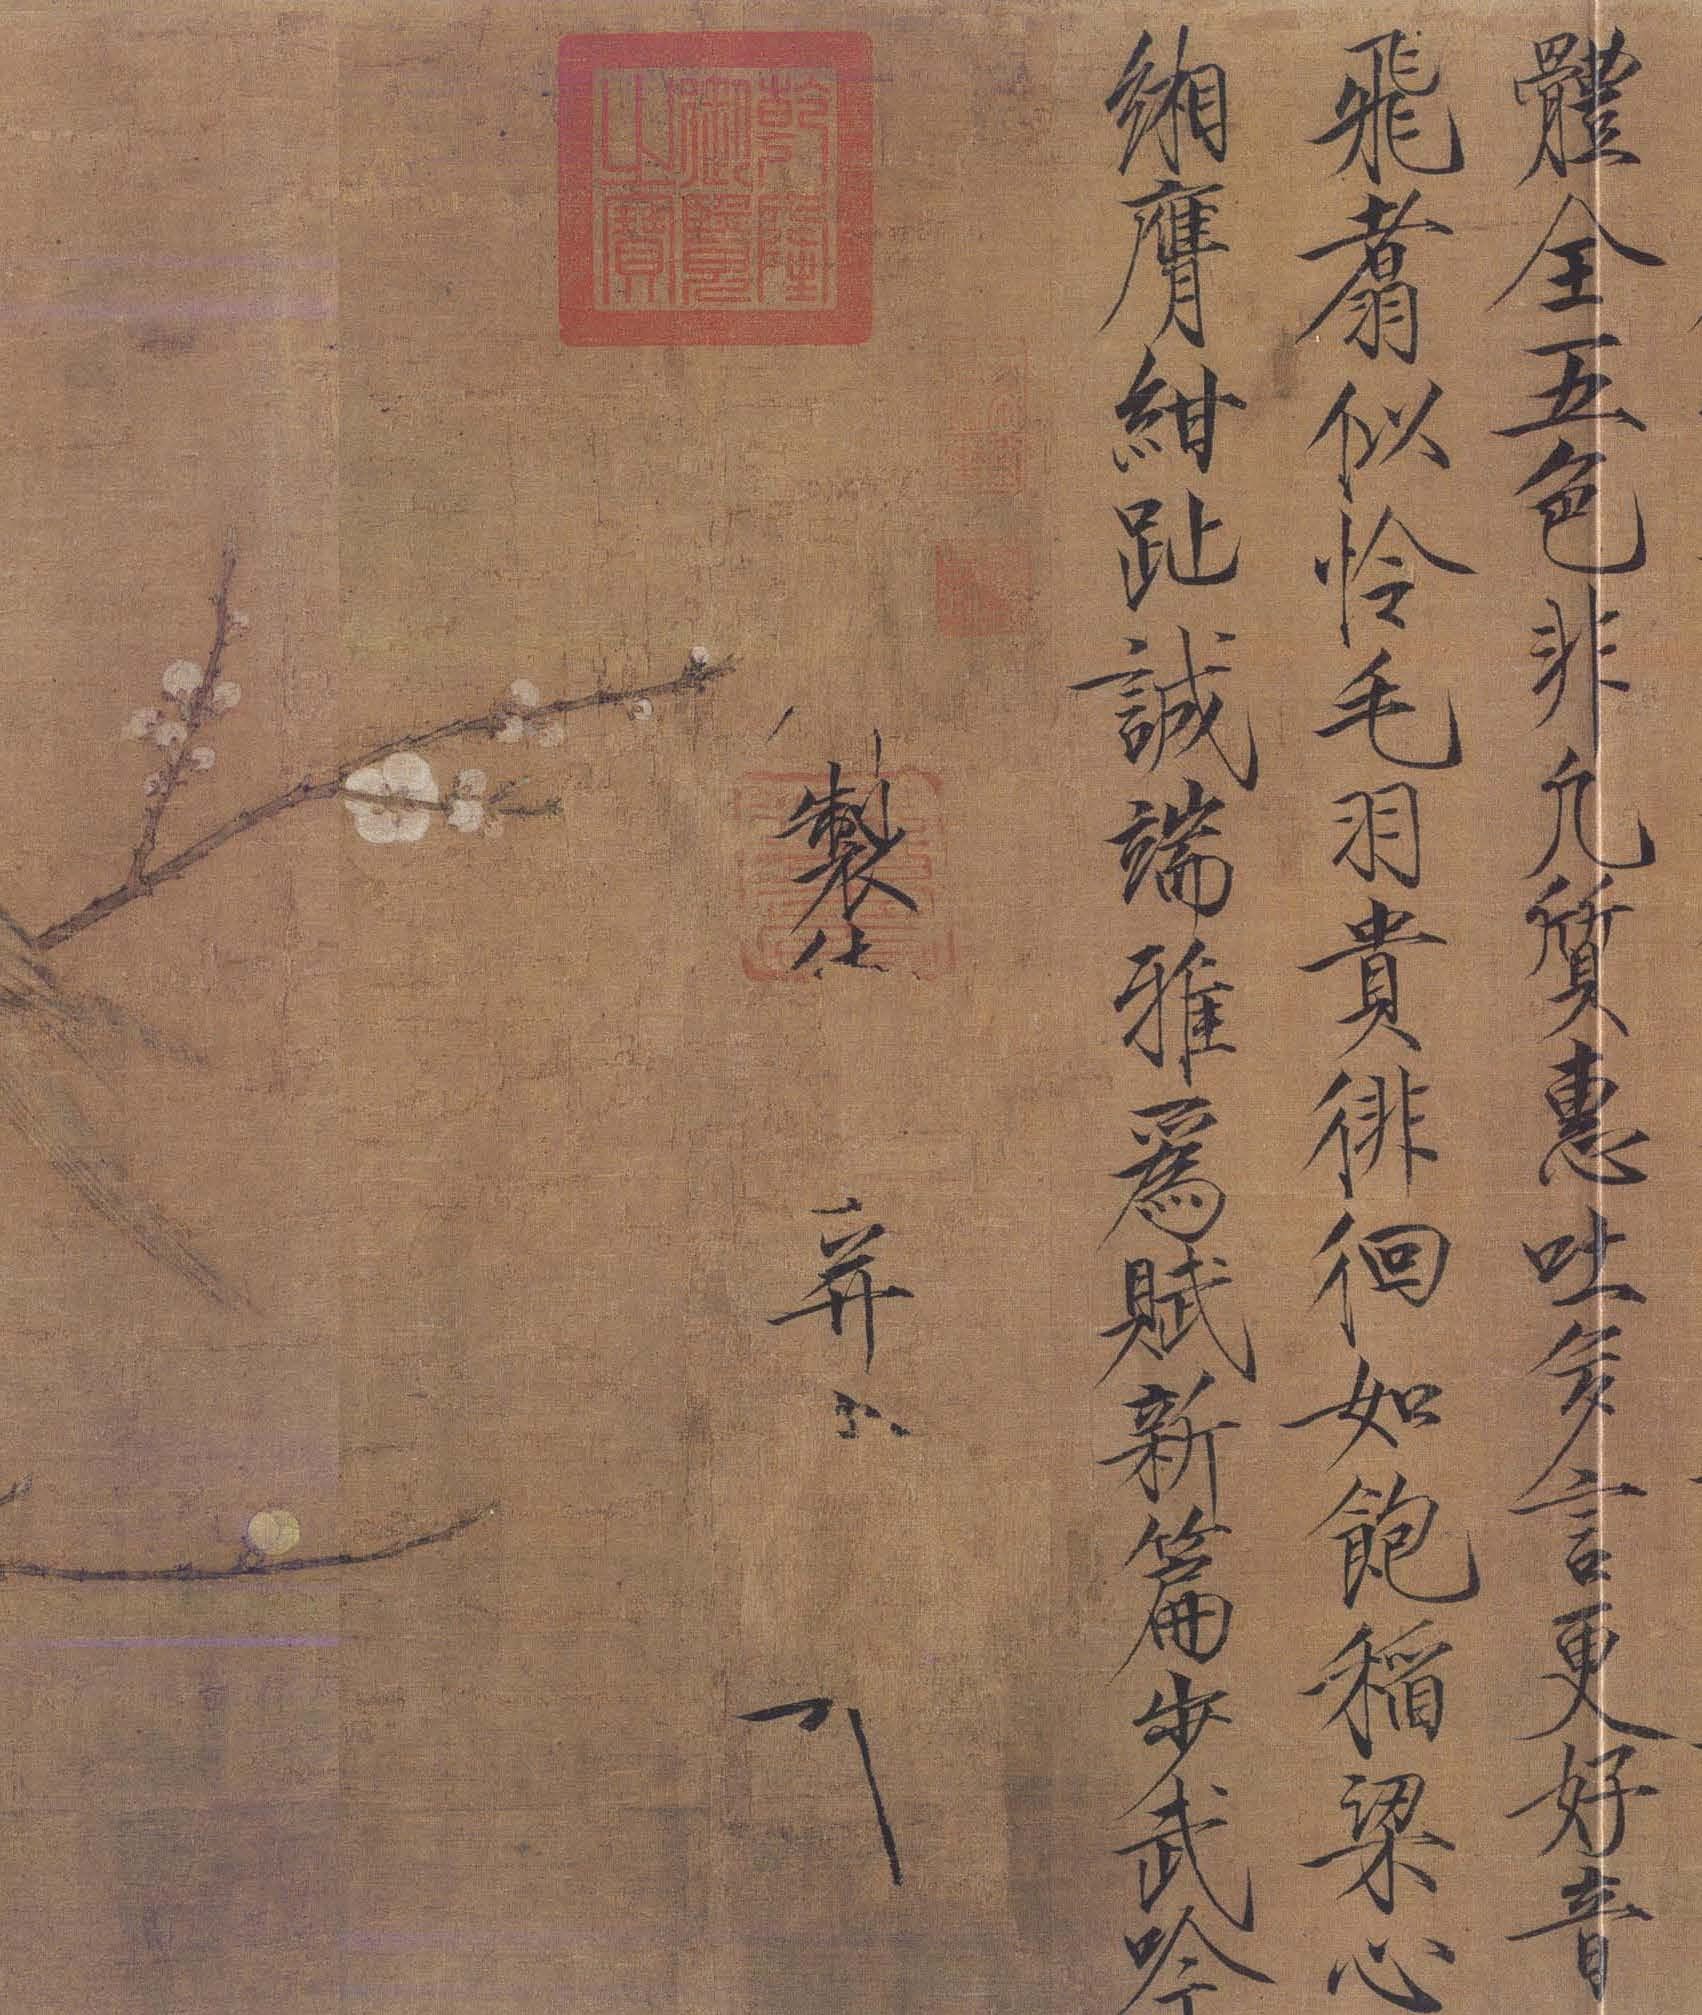 體全五色非凡質惠吐多言更好音
飛翥似怜毛羽貴徘徊如飽稻梁心
緗膺紺趾誠端雅爲賦新篇步武吟
乾隆御覽之寶
製